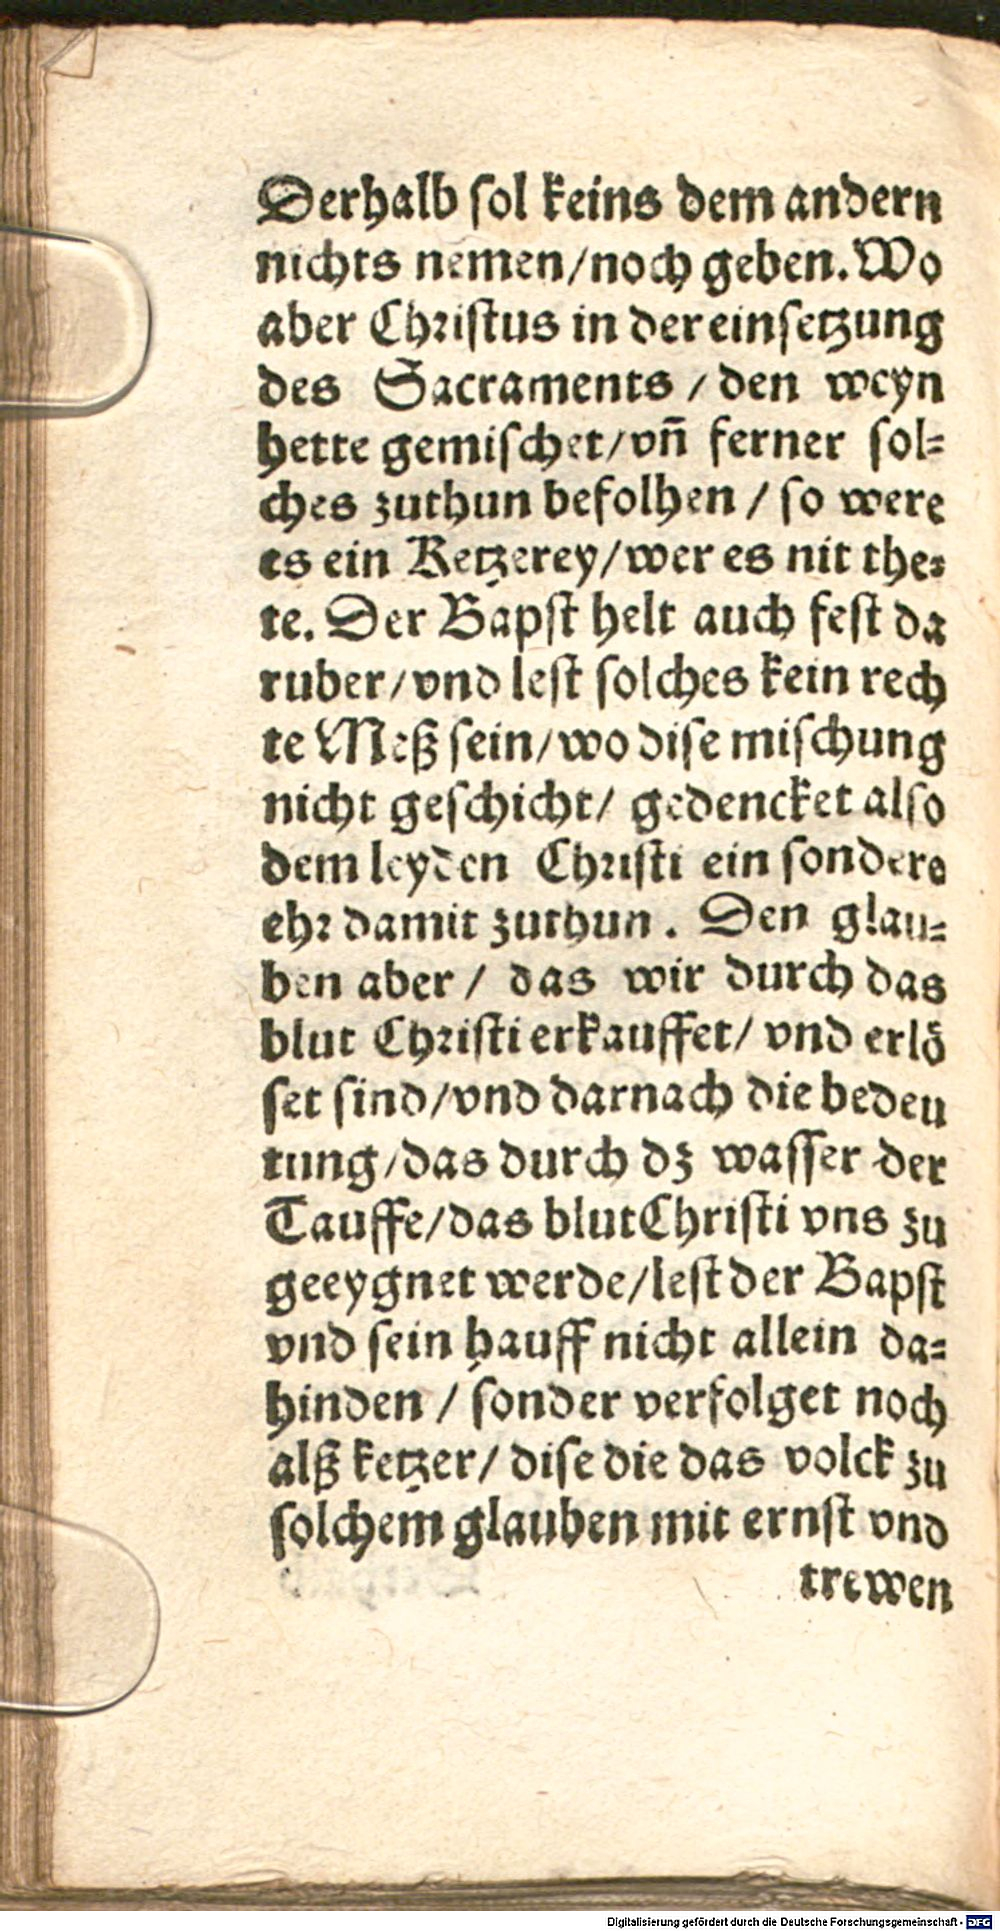 Derhalb ſol keins dem andern
nichts nemen/noch geben. Wo
aber Chꝛiſtus in der einſetzung
des Sacraments / den weyn
hette gemiſchet/vn̄ ferner ſol⸗
ches zuthun befolhen / ſo were
es ein Ketzerey/wer es nit the⸗
te. Der Bapſt helt auch feſt da
ruber/vnd leſt ſolches kein rech
te Meß ſein/wo diſe miſchung
nicht geſchicht/ gedencket alſo
dem leyden Chꝛiſti ein ſondere
ehꝛ damit zuthun . Den glau⸗
ben aber / das wir durch das
blut Chꝛiſti erkauffet/ vnd erlö
ſet ſind/vnd darnach die bedeu
tung/das durch dz waſſer der
Tauffe/das blut Chriſti vns zu
geeygnet werde/leſt der Bapſt
vnd ſein hauff nicht allein da⸗
hinden / ſonder verfolget noch
alß ketzer/ diſe die das volck zu
ſolchem glauben mit ernſt vnd
trewen
Digitalisierung gefördert durch die Deutsche Forschungsgemeinschaft - DFG